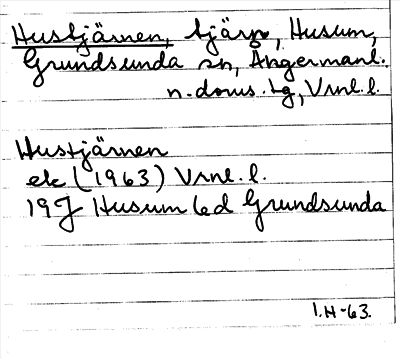 Hustjärnen, tjärn, Husum,
Grundsunda sn, Ångermanl.
n. doms. tg, Vrnl. l.
Hustjärnen
ek (1963) Vrnl. l.
19J Husum 6d Grundsunda
I.H-63.